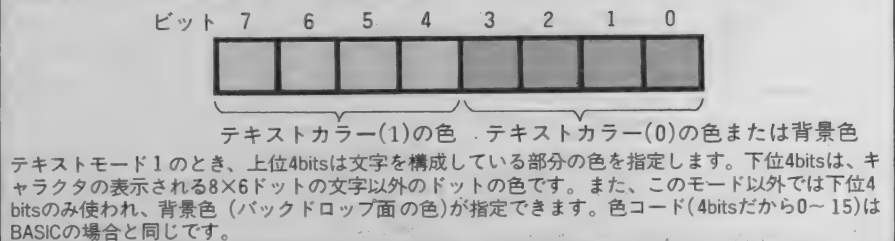 ビット 7 6 5 4 3 2 1 0
テキストカラー(1)の色 テキストカラー(0)の色または背景色
テキストモード1のとき、上位4bitsは文字を構成している部分の色を指定します。下位4bitsは、キ
ャラクタの表示される8×6ドットの文字以外のドットの色です。また、このモード以外では下位4
bitsのみ使われ、背景色(バックドロップ面の色)が指定できます。色コード(4bitsだから0〜15)は
BASICの場合と同じです。